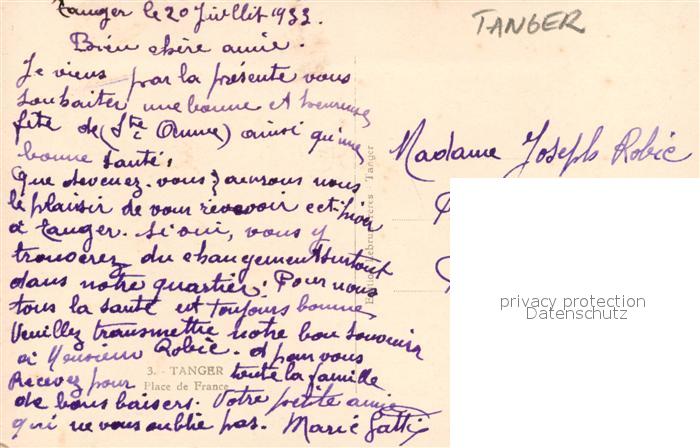 Tanger le 20 Juillet 1933.
TANGER
Bien chère amie.
Je viens par la présente vous
souhaiter une bonne et heureuse
fête de (Ste Anne) ainsi qu'une
bonne santé,
Que devenez-vous? aurons nous
le plaisir de vous revoir cet hiver
à Tanger. Si oui, vous y
trouverez du changement surtout
dans notre quartier. Pour nous
tous la santé est toujours bonne
Veuillez transmettre notre bon souvenir
à Monsieur Robic. et pour vous
Recevez pour toute la famille
de bons baisers. Votre petite amie
qui ne vous oublie pas. Marie Gatti
3. - TANGER
Place de France
Edition Lebrun Frères - Tanger
Madame Joseph Robic
privacy protection
Datenschutz